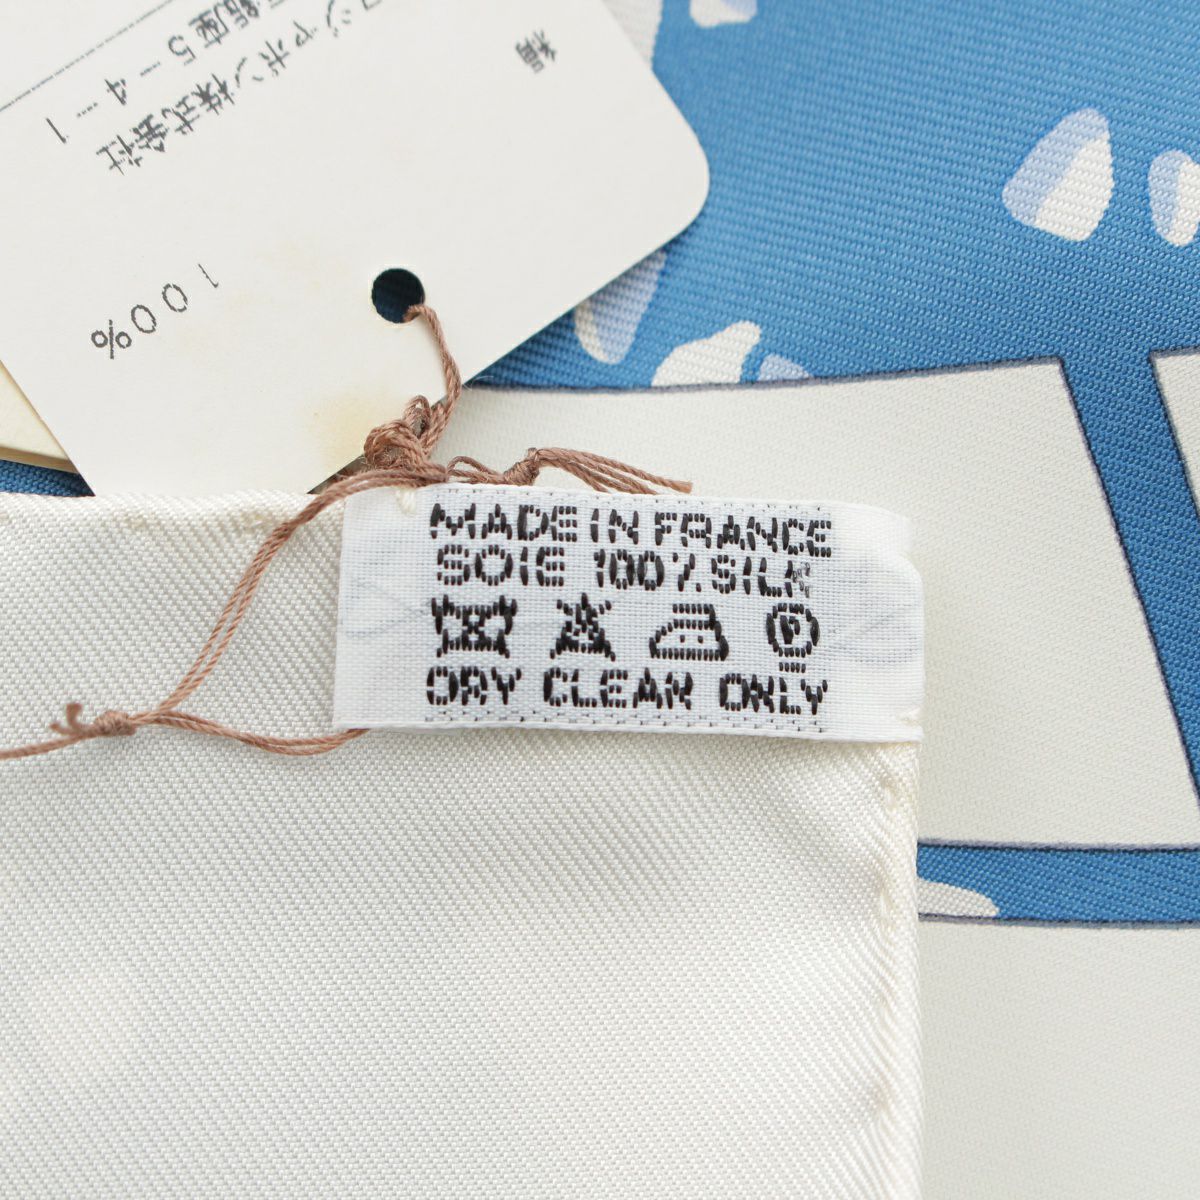 絹
100%
ジャポン株式会社
銀座5-4-1
MADE IN FRANCE
SOIE 100% SILK
P
DRY CLEAN ONLY